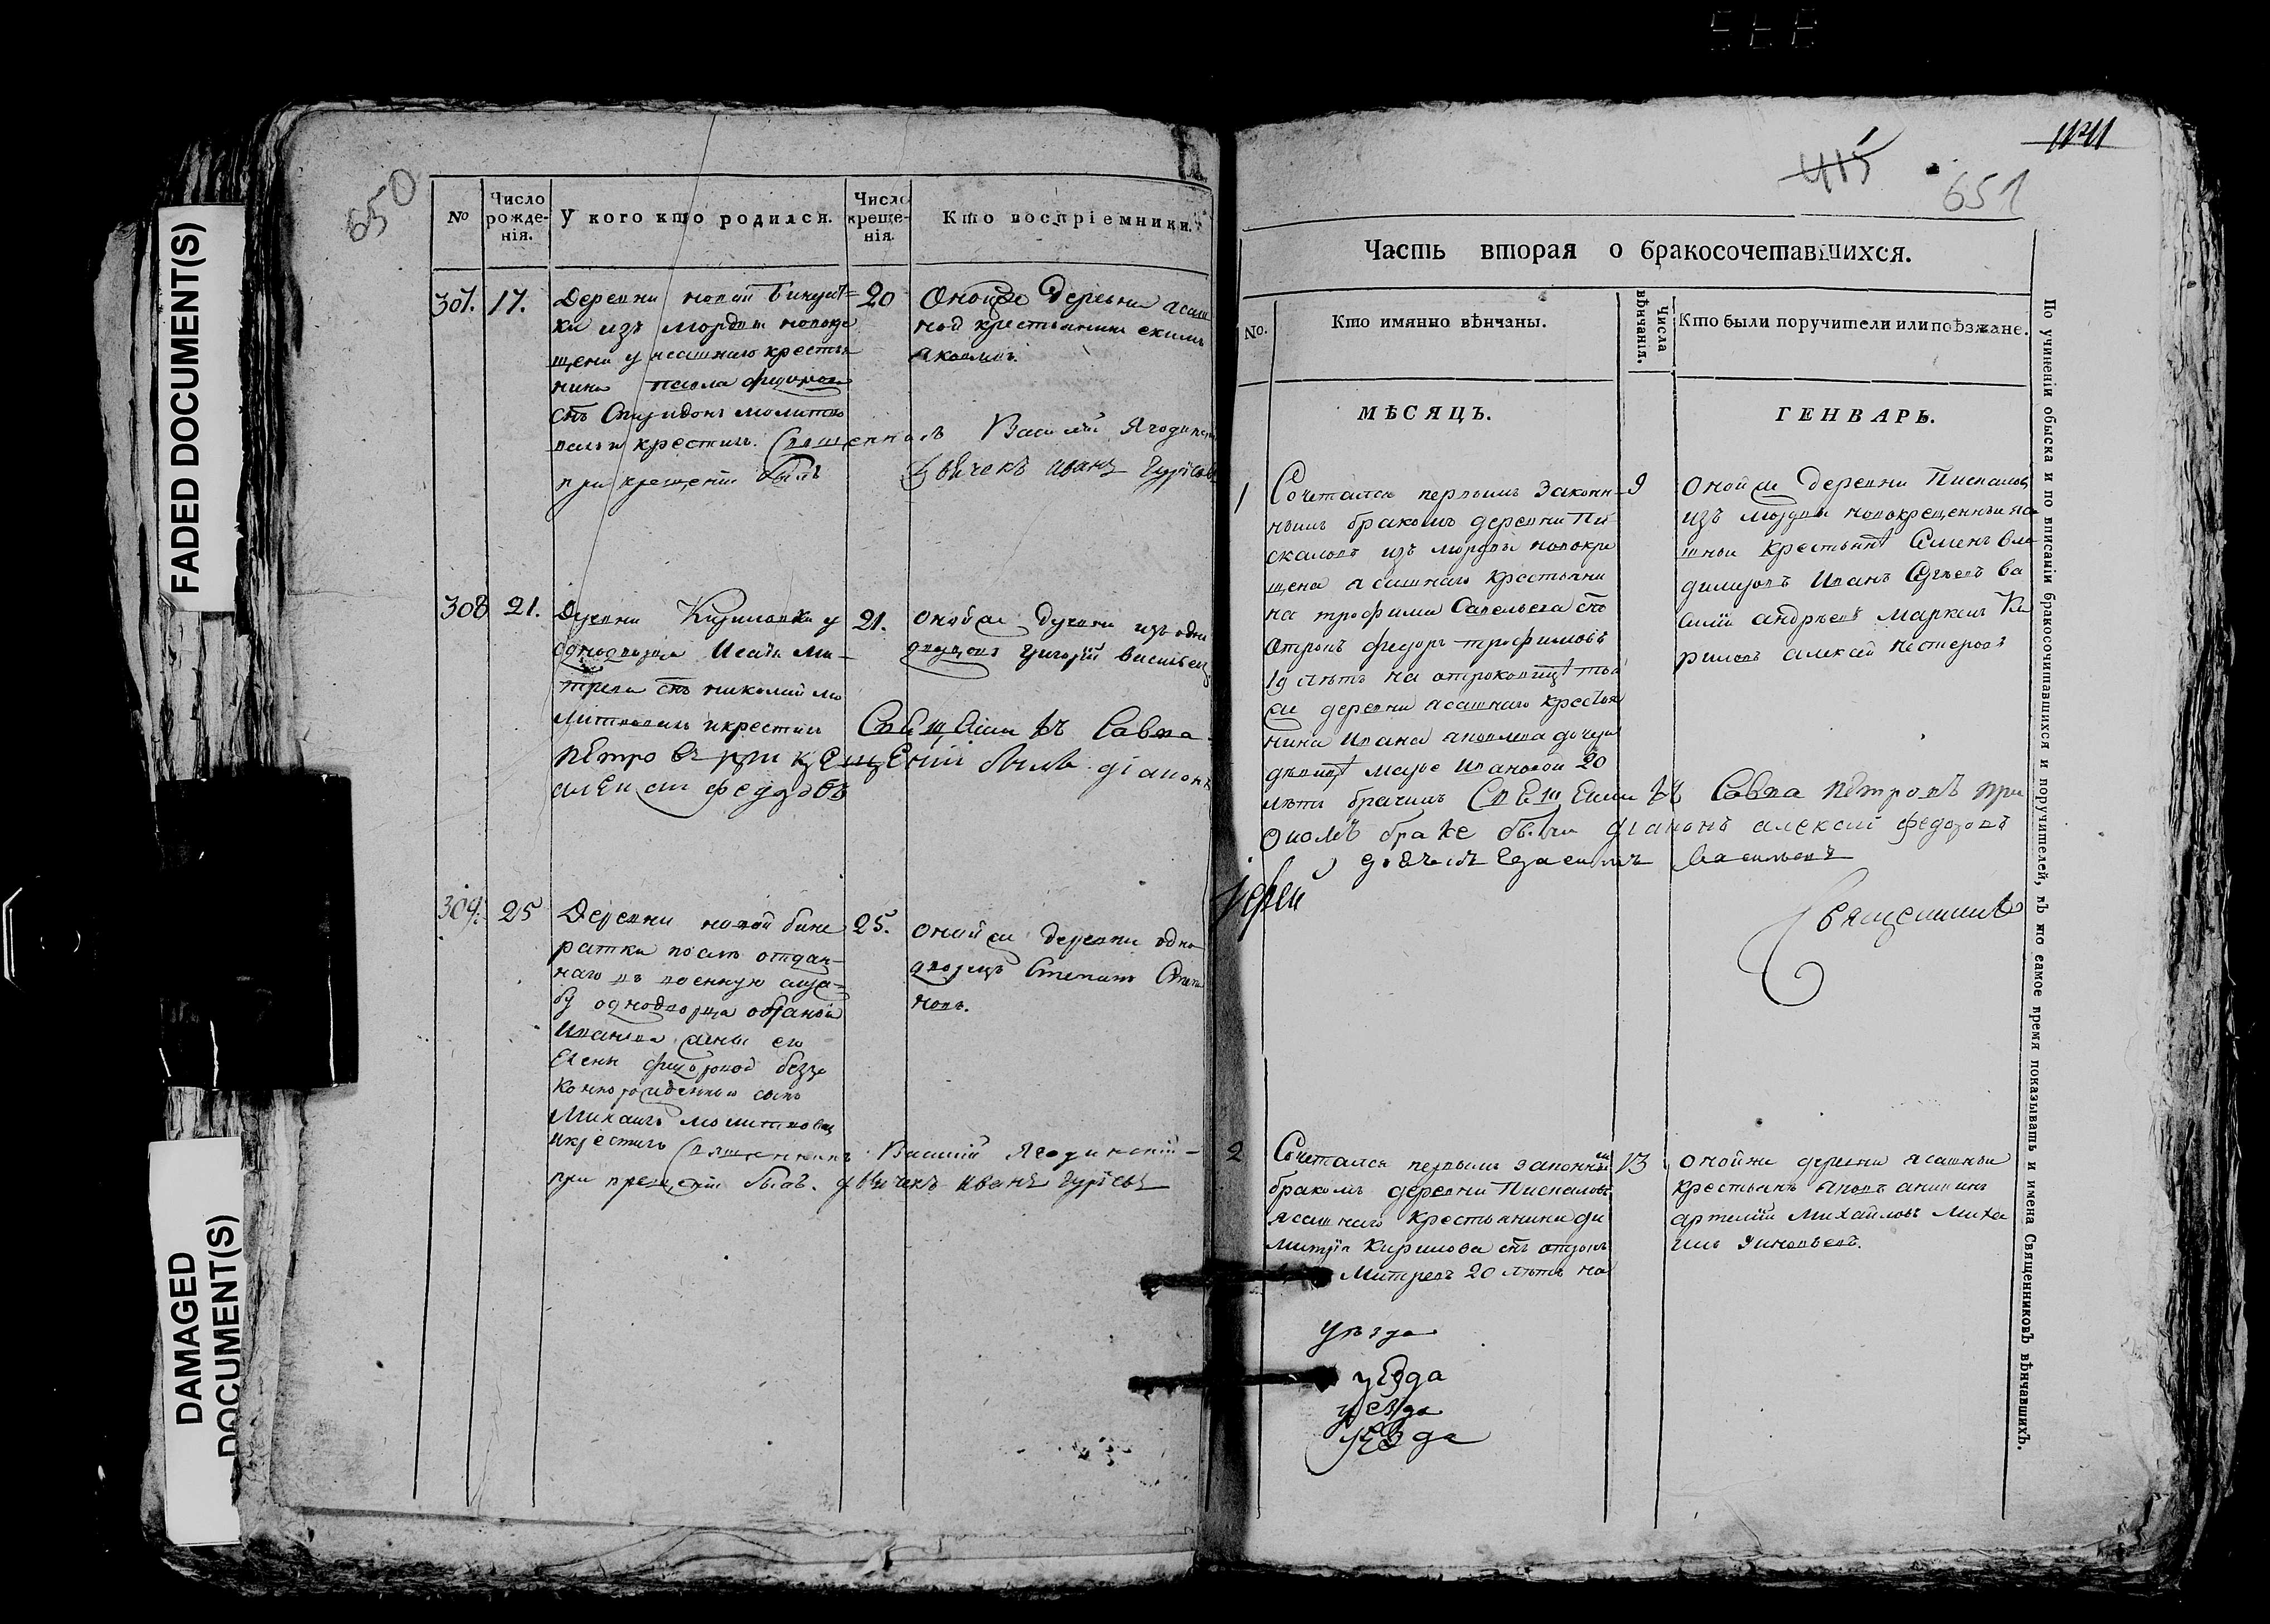 FADED DOCUMENT(S)
DAMAGED
DOCUMENT(S)
650
No
Число рожденія.
У кого кто родился.
Число крещенія.
Кто воспріемники.
307. 17.
Деревни новой
ки изъ мордвы новокре
щена у ясашнаго крестья
нина Павла
снъ Спиридонъ молитво
валъ и крестилъ. Священникъ Василий Ягодинской
при крещении былъ дьячекъ иванъ Гурьевъ
20
Оной же деревни ясаш
ной крестьянинъ екимъ
яковлевъ.
308 21.
Деревни Кириловки у
однодворца Исаія Ми-
трева снъ николай мо
литвовалъ и крестилъ Священникъ Савва
Петровъ при крещении былъ диаконъ
алексий федоровъ
21.
оной же деревни изъ одно
дворцовъ григорій васильевъ
309. 25
Деревни новой бине
ратки послѣ отдан-
наго въ военную служ-
бу однодворца
Иванова жены его
Елены федоровой безза
коннорожденный сынъ
Михаилъ молитвовалъ
и крестилъ Священникъ Василий Ягодинский
при крещении былъ. дьячекъ иванъ гурьевъ
25.
оной же деревни одно
дворецъ Степанъ Степа
новъ.
415
651
1141
Часть вторая о бракосочетавшихся.
No.
Кто имянно вѣнчаны.
Числа вѣнчанія.
Кто были поручители или поѣзжане.
МѢСЯЦЪ.
ГЕНВАРЬ.
1
Сочетался первымъ законн-
нымъ бракомъ деревни Пи
скаловъ изъ мордвы новокре
щена ясашнаго крестьяни
на трофима Савельева снъ
отрокъ федоръ трофимовъ
19 лѣтъ на отроковицѣ той
же деревни ясашнаго крестья
нина Ивана яковлева дочери
девицѣ марье Ивановой 20
лѣтъ брачилъ Священникъ Савва Петровъ при
ономъ браке были диаконъ алексий федоровъ
дьячекъ Герасимъ Васильевъ
9
Оной же деревни Пискаловъ
изъ мордвы новокрещенныи яса
шныи крестьянѣ Семенъ Вла
димировъ Иванъ Сергѣевъ Ва
силій андрѣевъ маркелъ Ки
риловъ алексей нестеровъ
іерей
Священникъ
2
Сочетался первымъ законнымъ
бракомъ деревни Пискаловъ
ясашнаго крестьянина ди
митрія Кирилова снъ отрокъ
Митревъ 20 лѣтъ на
13
оной же деревни ясашныи
крестьянѣ яковъ аникинъ
артемій Михайловъ Миха
илъ Зиновьевъ.
уѣзда
уѣзда
уезда
уѣзда
По учиненіи обыска и по вписаніи бракосочитавшихся и поручителей, въ то самое время показывать и имена Священниковъ вѣнчавшихъ.